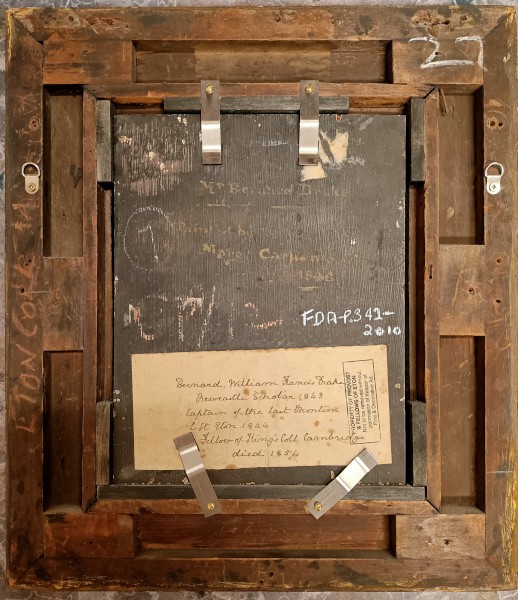 27
Mr Bernard Drake
Painted by
Mrs Carpenter
1846
FDA-P.342-
2010
ETON COLL
Bernard, William Francis Drake
Newcastle Scholar 1843
Captain of the last Montem
left Eton 1844
Fellow of King's Coll Cambridge
died 1854
PROPERTY OF PROVOST
& FELLOWS OF ETON